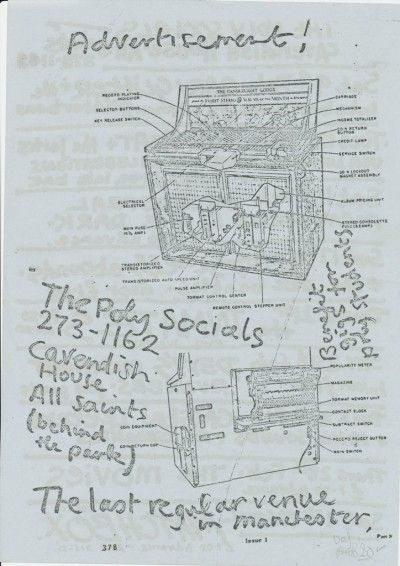 Advertisement!
RECORD PLAYING
INDICATOR
SELECTOR BUTTONS
KEY RELEASE SWITCH
CARRIAGE
MECHANISM
INCOME TOTALIZER
COIN RETURN
BUTTON
CREDIT LAMP
SERVICE SWITCH
COIN LOCKOUT
MAGNET ASSEMBLY
ELECTRICAL
SELECTOR
ALBUM PRICING UNIT
MAIN FUSE
STEREO CONSOLETTE
TRANSISTORIZED
STEREO AMPLIFIER
TRANSISTORIZED AUTO SPEED UNIT
PULSE AMPLIFIER
TORMAT CONTROL CENTER
REMOTE CONTROL STEPPER UNIT
The Poly Socials
273-1162
Cavendish
House
All Saints
(behind
the park)
POPULARITY METER
MAGAZINE
TORMAT MEMORY UNIT
CONTACT BLOCK
SUBTRACT SWITCH
RECORD REJECT BUTTON
MAIN SWITCH
COIN EQUIPMENT
COIN RETURN CUP
The last regular venue
in manchester.
Issue 1
378